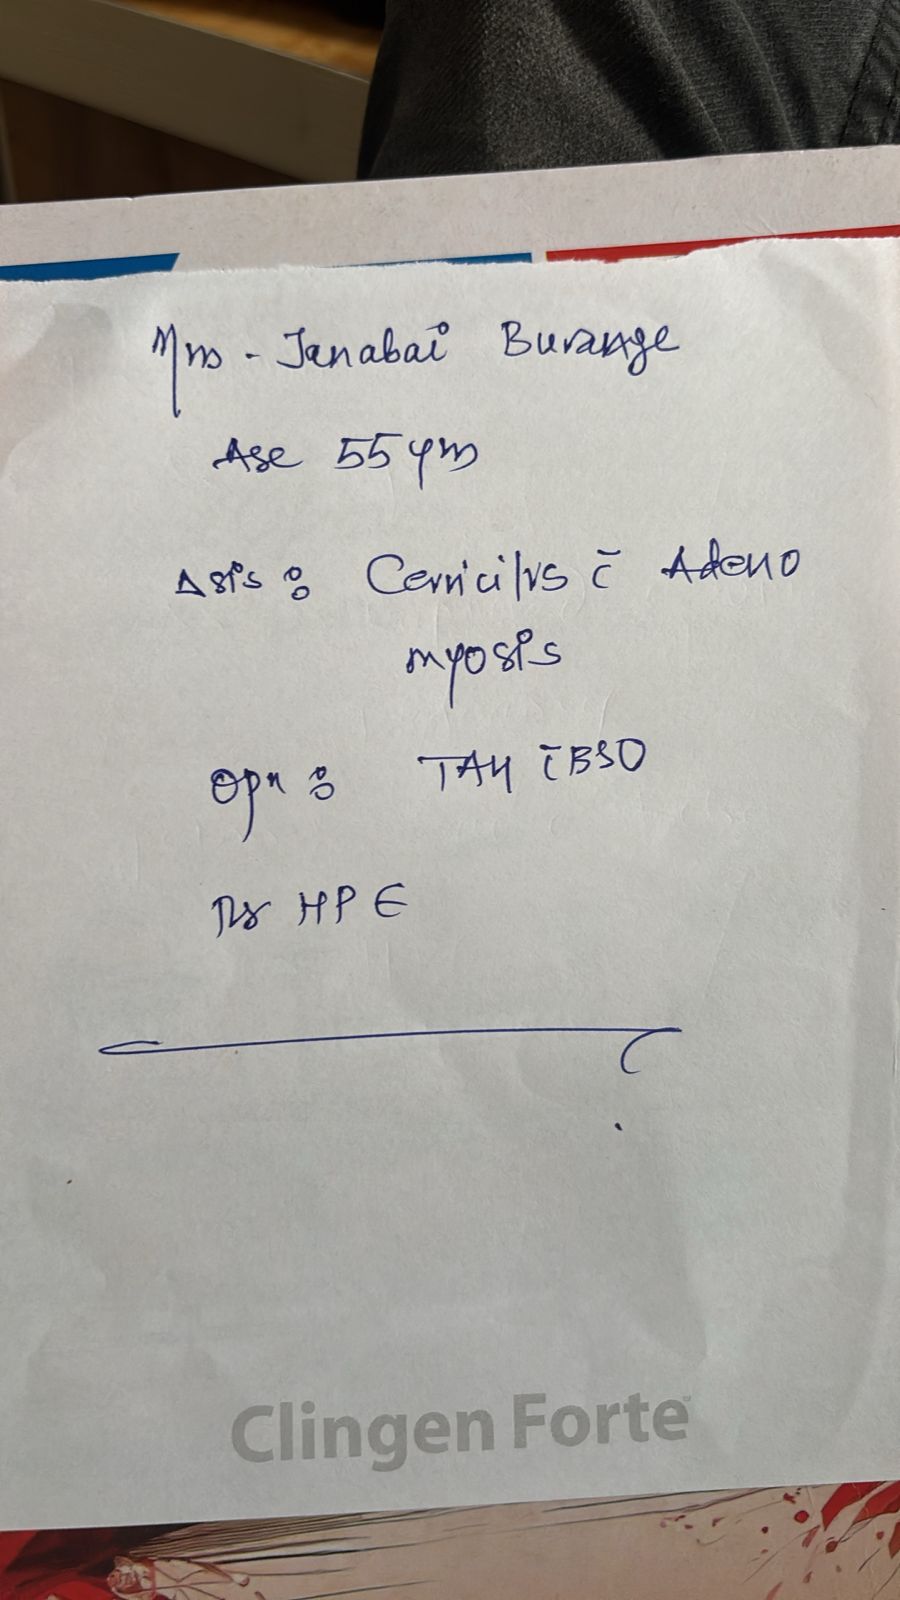 Mrs - Janabai Burange
Age 55 yrs
Δsis : Cervicitis c̄ Adeno
myosis
Opn : TAH c̄ BSO
HPE
Clingen Forte